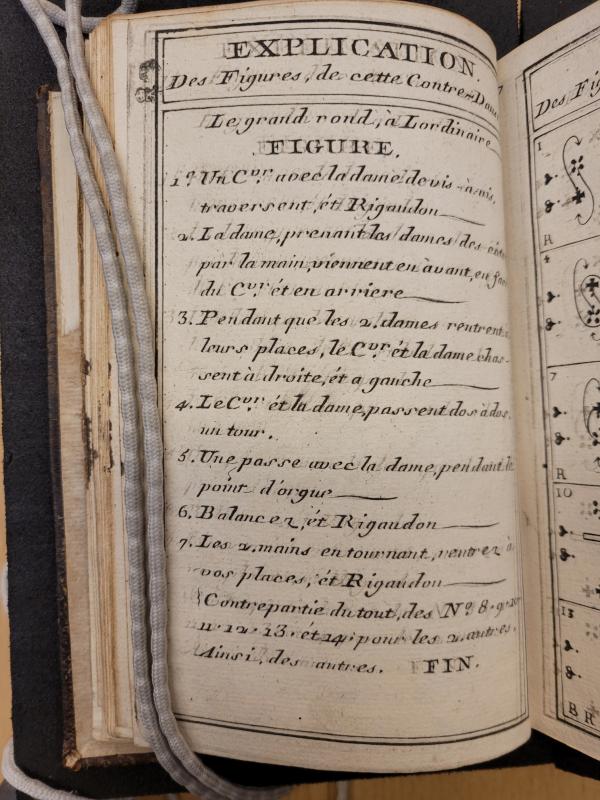 EXPLICATION.
Des Figures, de cette Contre-Dans
Le grand rond, à Lordinaire
FIGURE.
1º. Un C.er avec la dame de vis-à-vis,
traversent, ét Rigaudon
2. La dame, prenant les dames des côtés
par la main, viennent en àvant, en face
du C.er ét en arriere
3. Pendant que les 2. dames rentrent à
leurs places, le C.er ét la dame chas-
sent à droite, ét a gauche
4. Le C.er ét la dame, passent dos à dos,
un tour.
5. Une passe avec la dame, pendant le
point d'orgue
6. Balancez, ét Rigaudon
7. Les 2. mains en tournant, rentrez à
vos places, ét Rigaudon
Contrepartie du tout, des Nº. 8. 9. 10.
11. 12. 13. ét 14. pour les 2. autres.
Ainsi, des autres. FIN.
Des Fig
1
R
4
7
R
10
13
B R